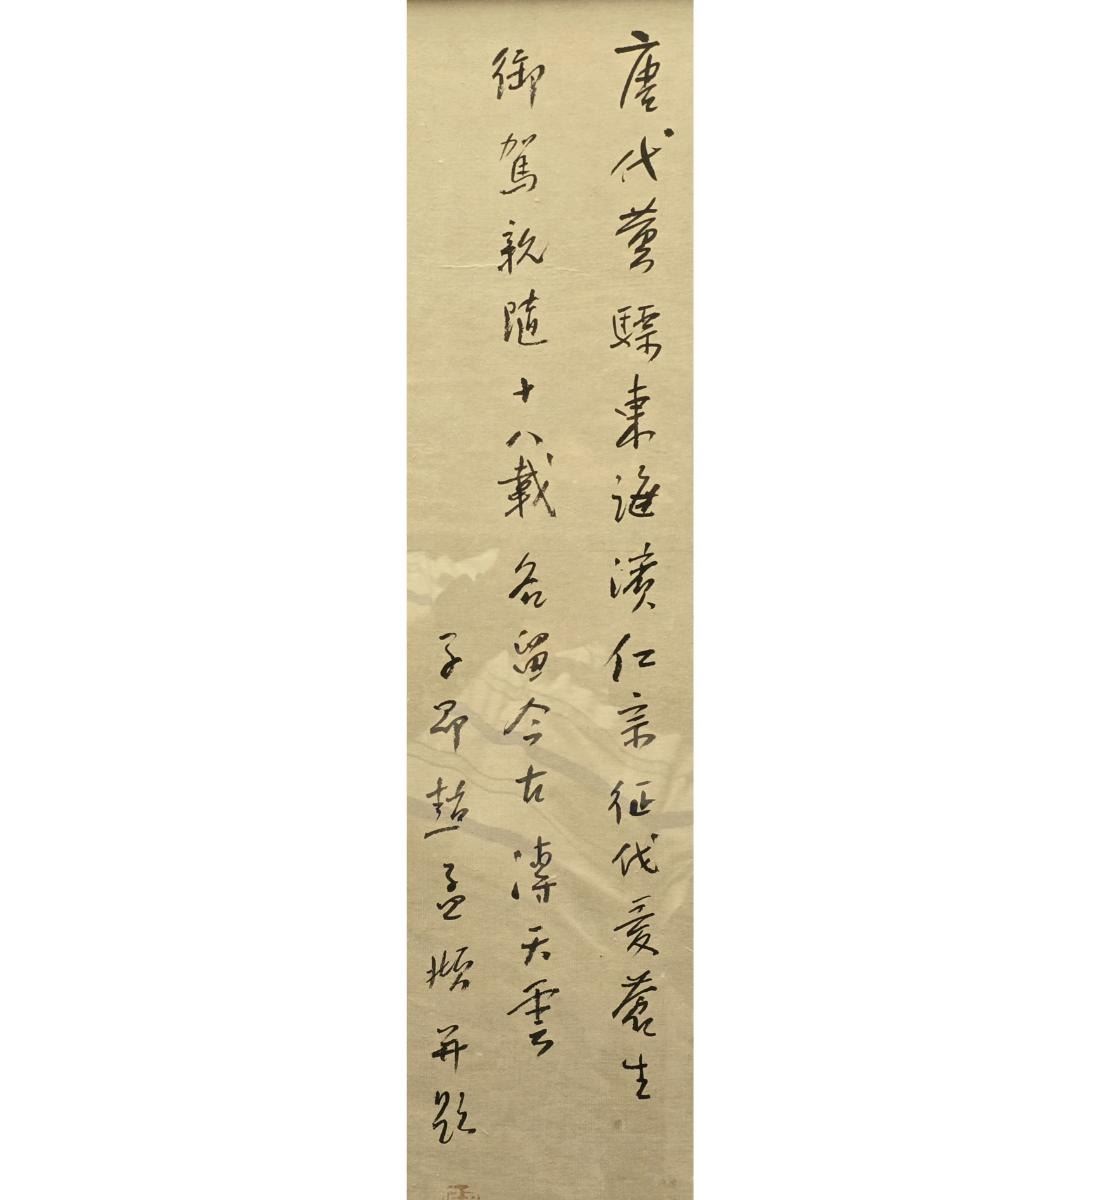 唐代黃驃東海濱仁宗征伐愛蒼生
御駕親隨十八載名留今古溥天雲
子昂趙孟頫并題